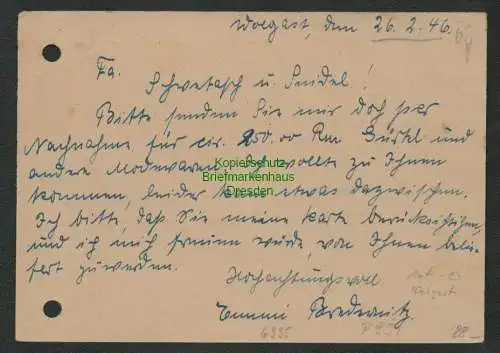 Wolgast, den 26.2.46.
Fa.
Schwetasch u. Seidel!
Bitte senden Sie mir doch per
Nachnahme für cir. 250.00 Rm Gürtel und
andere Modewaren. Ich wollte zu Ihnen
kommen, leider kam etwas dazwischen.
Ich bitte, daß Sie meine Karte berücksichtigen,
und ich mich freuen würde, von Ihnen belie-
fert zu werden.
Hochachtungsvoll
Emmi
Wolgast
6995
88.-
Kopierschutz
Briefmarkenhaus
Dresden